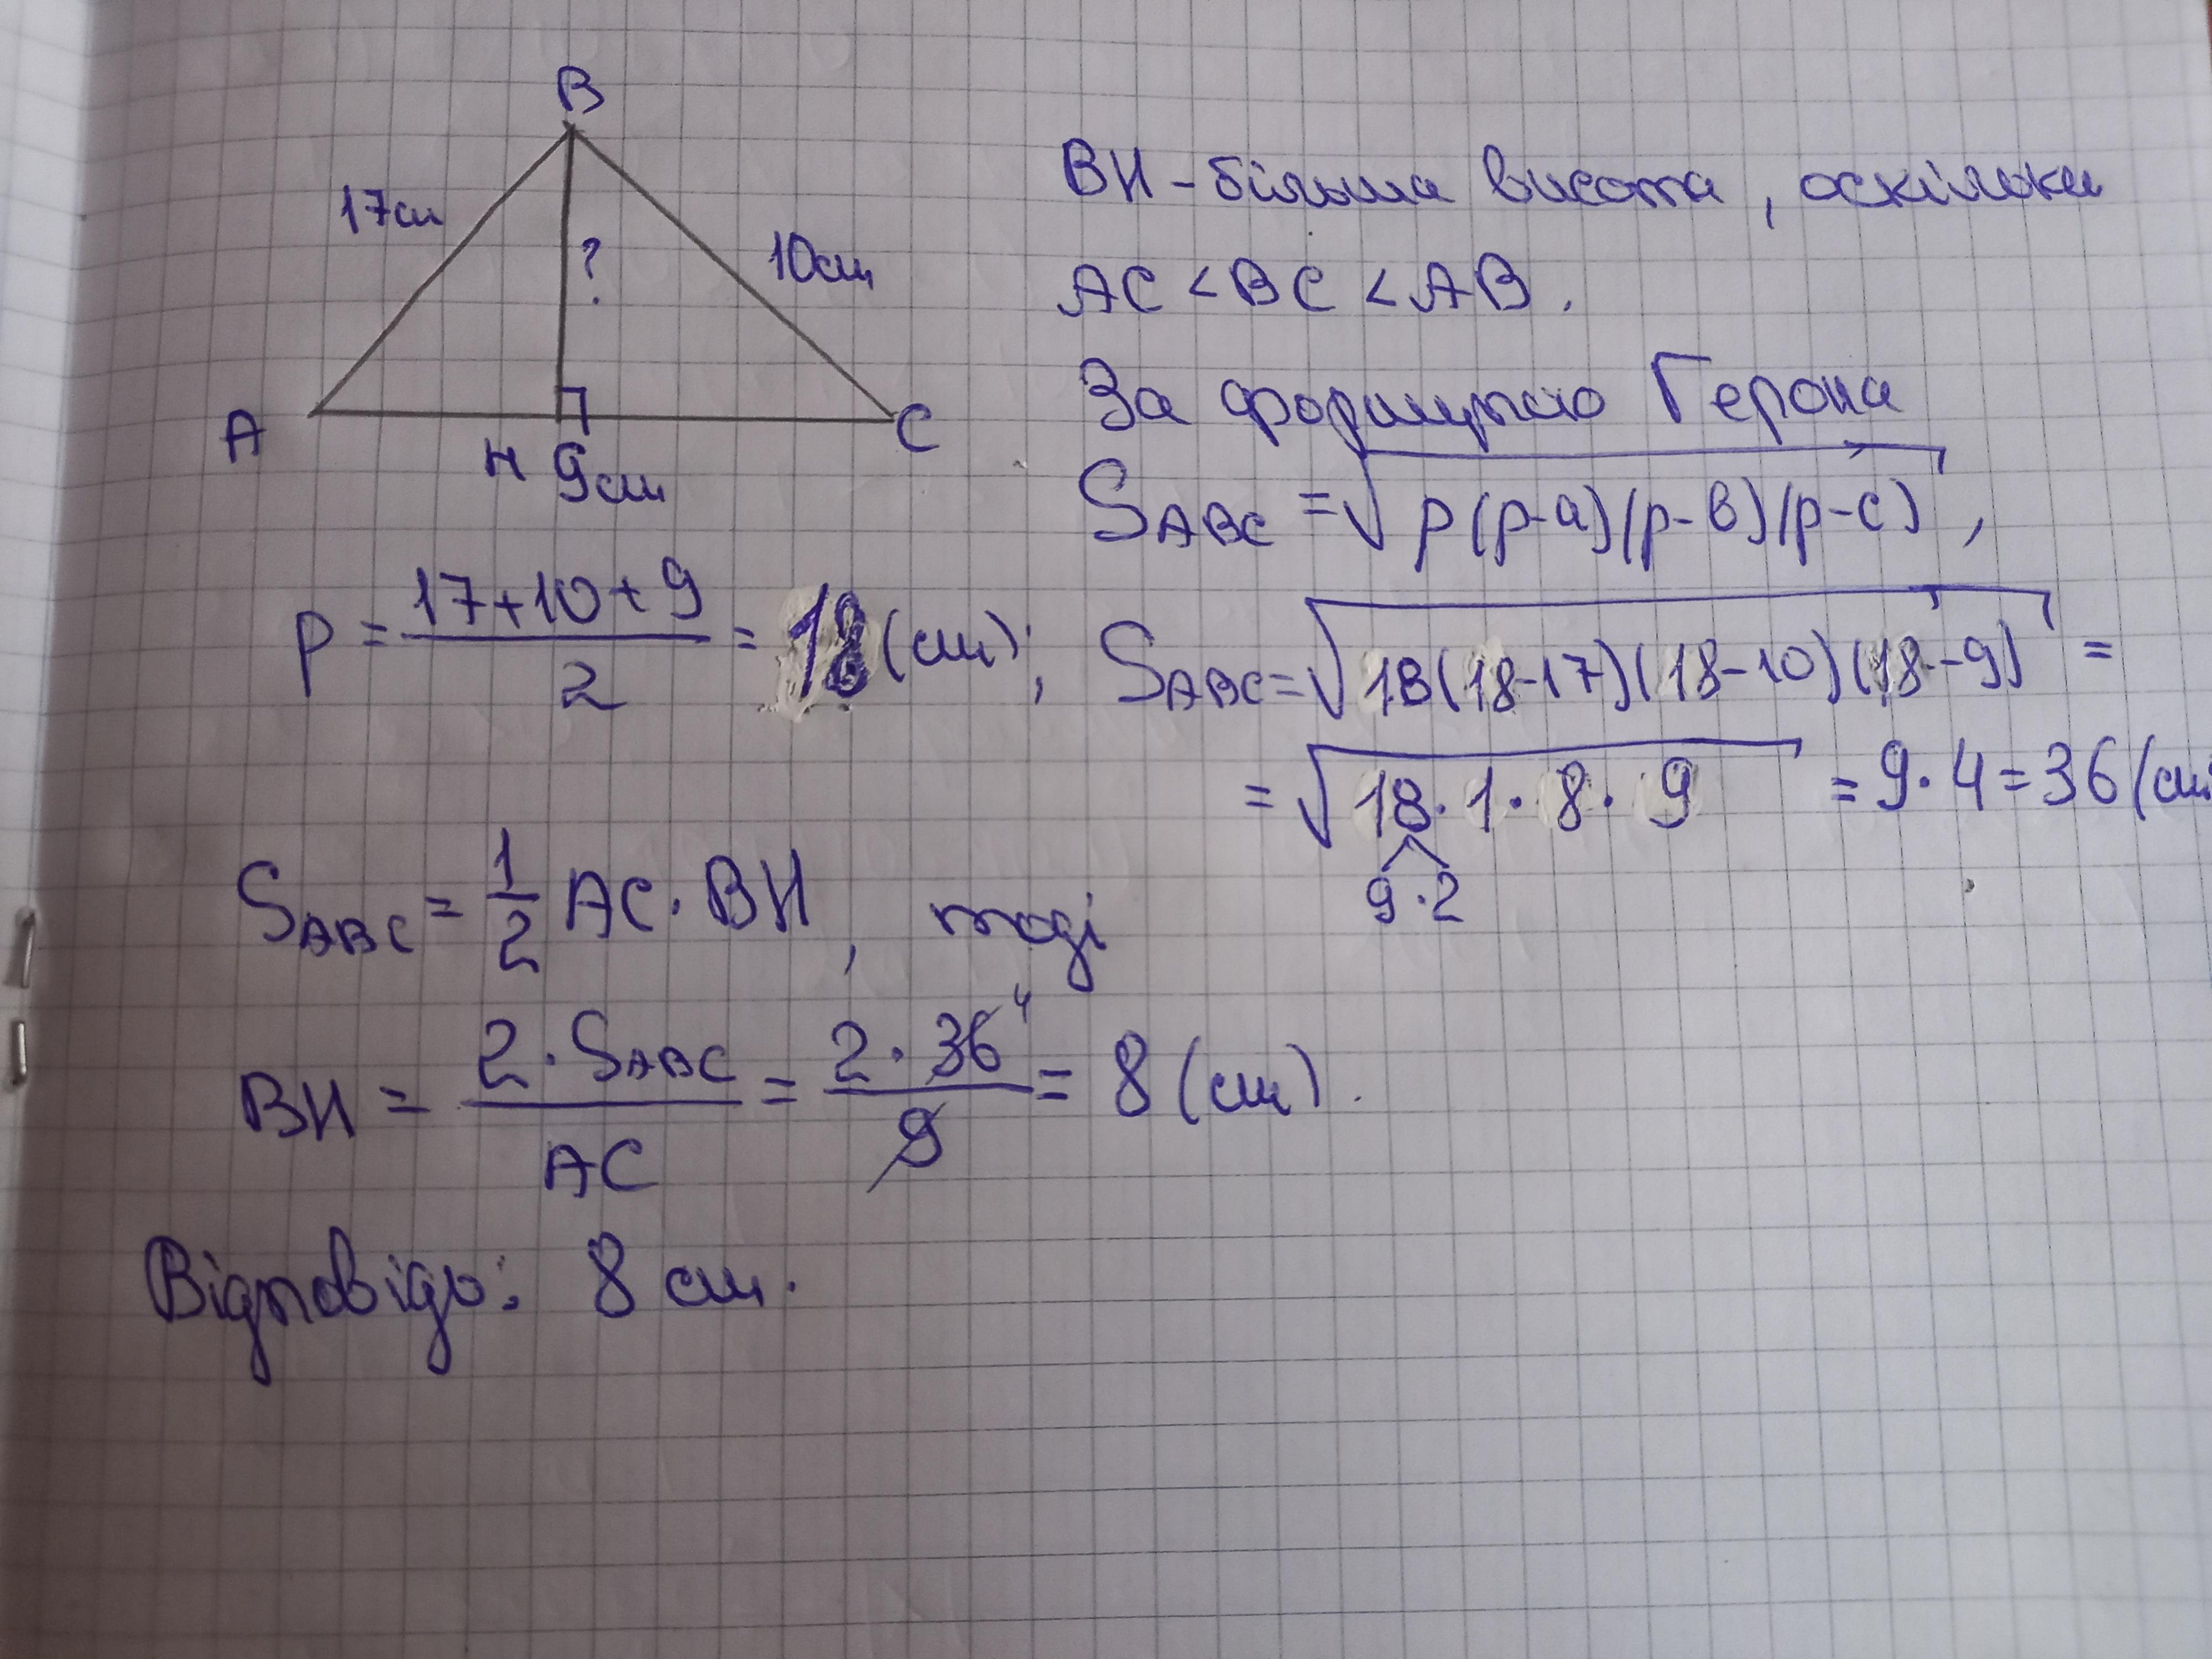 B
17см
?
10см
A
H 9см
C
BH - більша висота, оскільки
AC < BC < AB.
За формулою Герона
S ABC = √p(p-a)(p-b)(p-c),
p = 17+10+9 / 2 = 18 (см);
S ABC = √18(18-17)(18-10)(18-9) =
= √18·1·8·9 = 9·4 = 36 (см
9·2
S ABC = 1/2 AC·BH, тоді
BH = 2·S ABC / AC = 2·36 4 / 9 = 8 (см).
Відповідь: 8 см.